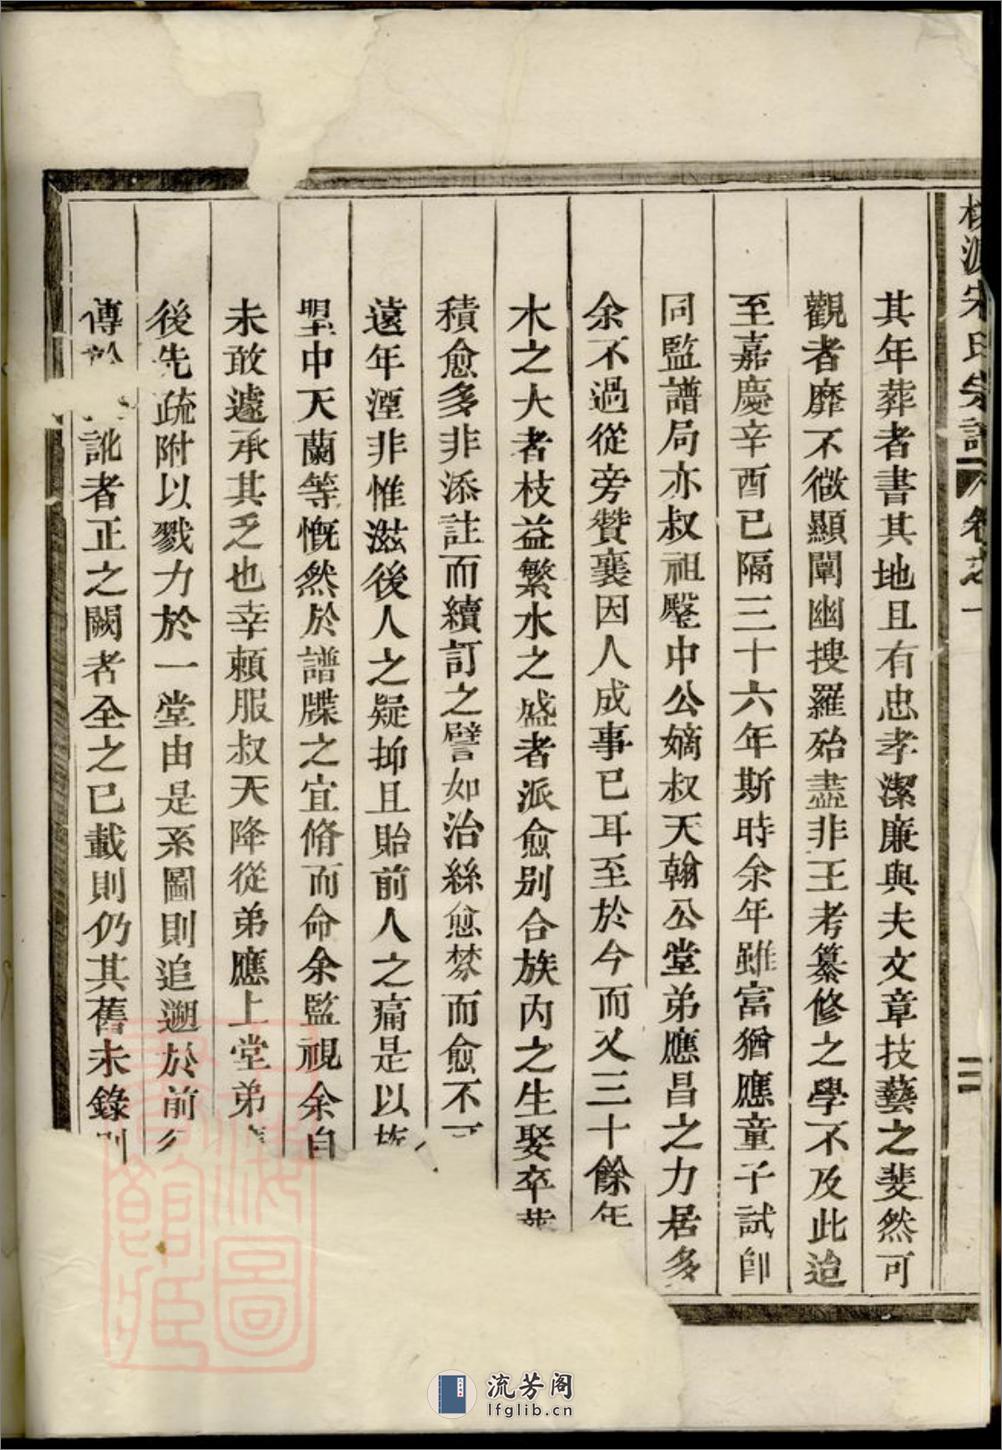 源宋氏宗譜 卷之一
其年葬者書其地且有忠孝潔廉與夫文章技藝之斐然可
觀者靡不微顯闡幽搜羅殆盡非王考纂修之學不及此迨
至嘉慶辛酉已隔三十六年斯時余年雖富猶應童子試即
同監譜局亦叔祖璧中公嫡叔天翰公堂弟應昌之力居多
余不過從旁贊襄因人成事已耳至於今而又三十餘年
木之大者枝益繁水之盛者派愈别合族内之生娶卒葬
積愈多非添註而續訂之譬如治絲愈棼而愈不可
遠年湮非惟滋後人之疑抑且貽前人之痛是以族
中天蘭等慨然於譜牒之宜脩而命余監視余自
未敢遽承其乏也幸賴服叔天降從弟應上堂弟
後先疏附以戮力於一堂由是系圖則追遡於前
傳 訛者正之闕者全之已載則仍其舊未錄則
上海圖書館藏
流芳阁
lfglib.cn